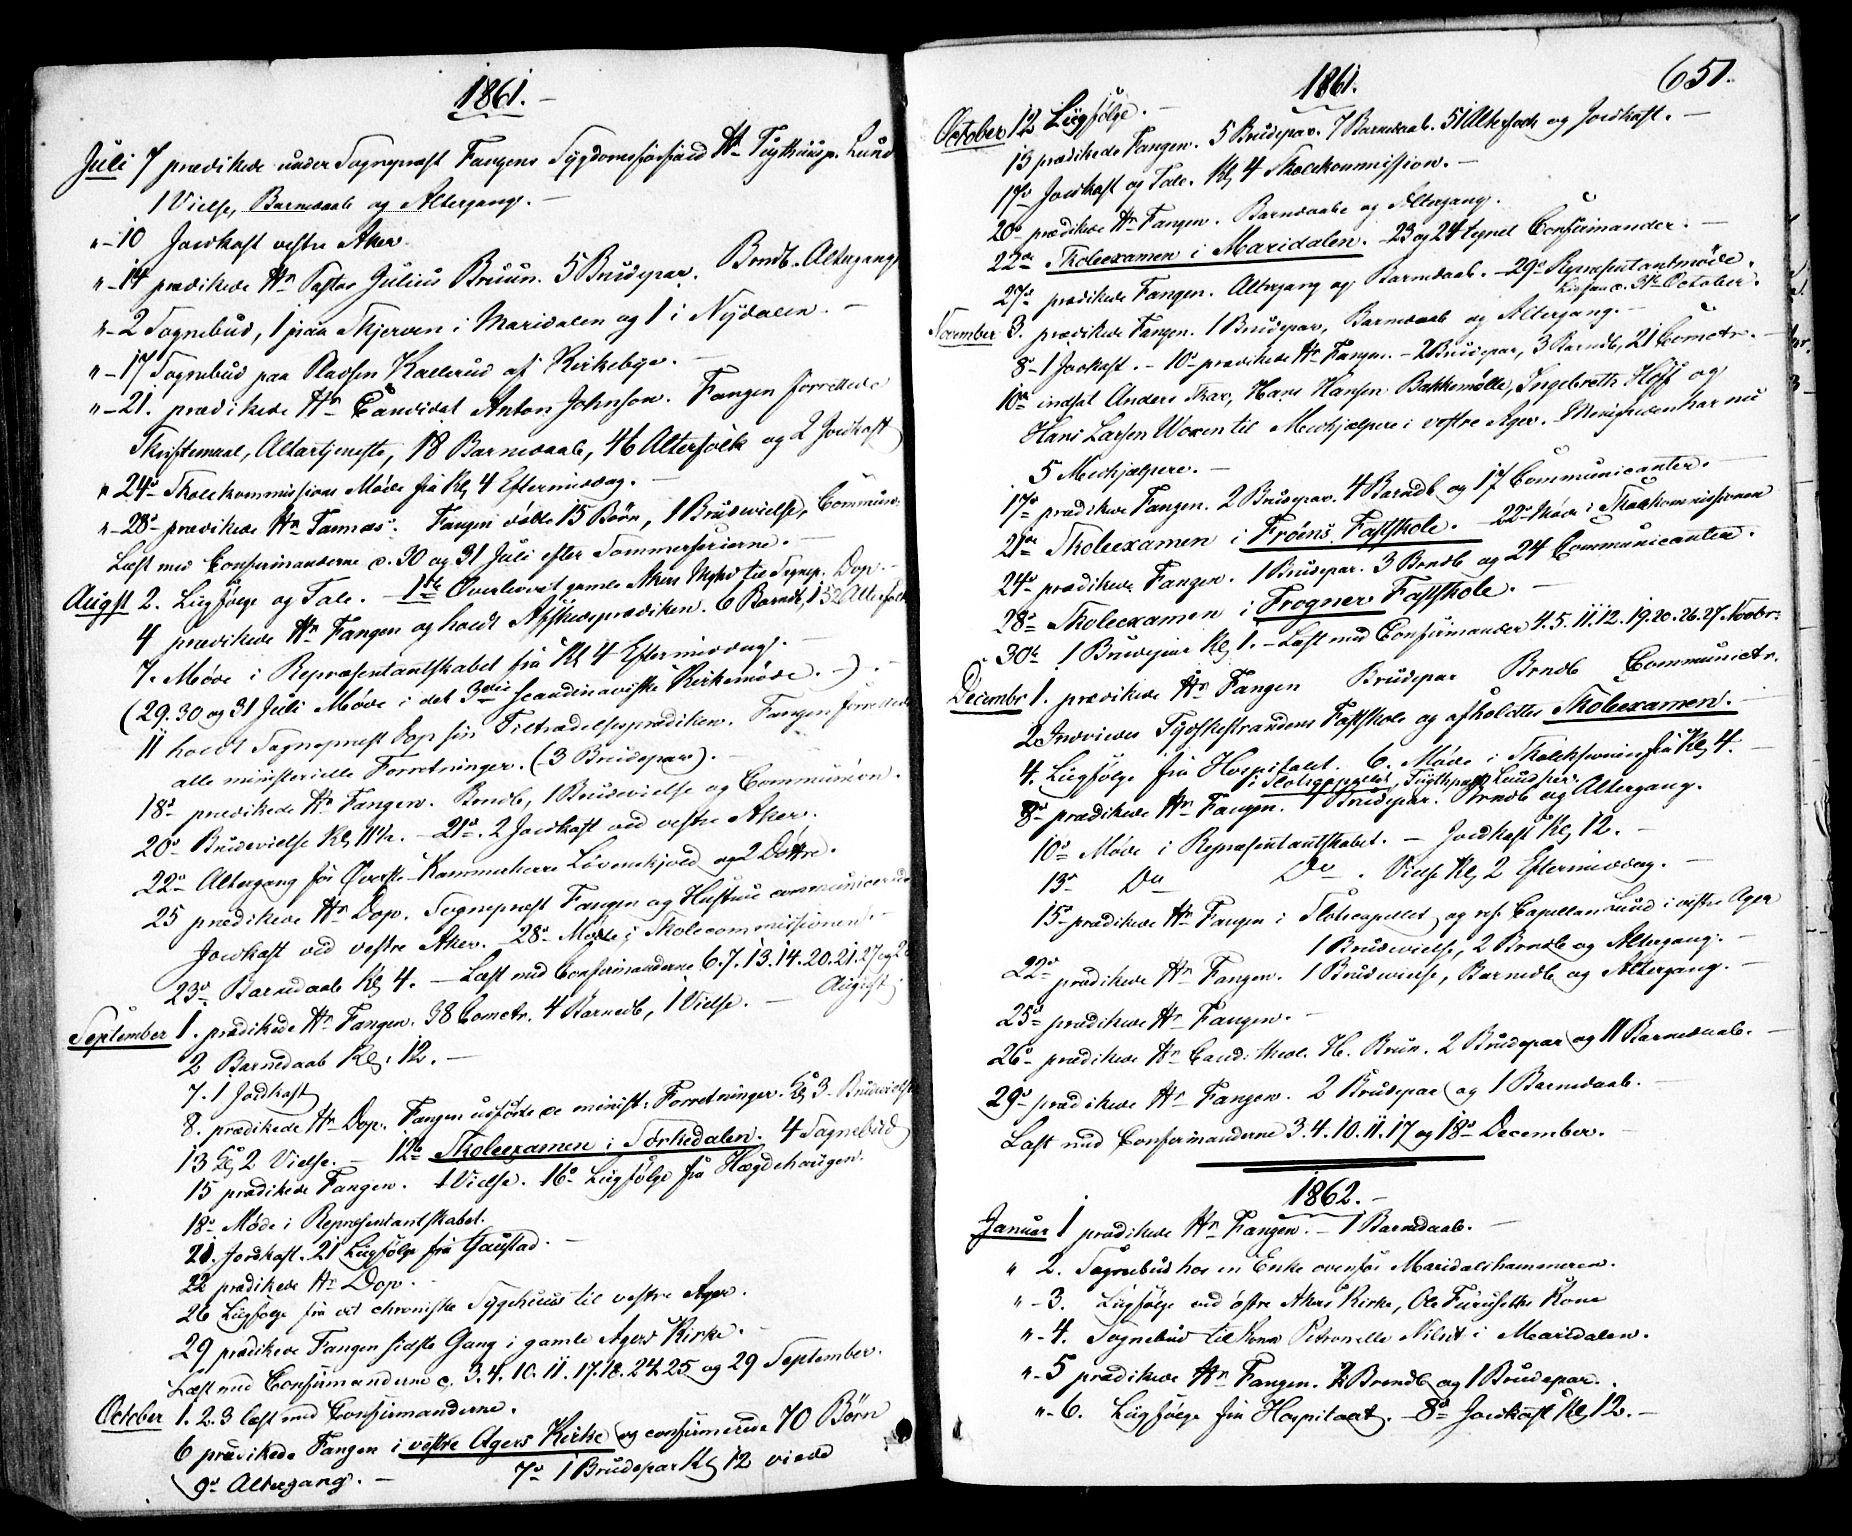 1861.
Juli 7 prædikede under Sognepræst Fangens Sygdomsforfald Hr Tugthuusp. Lund
1 Vielse, Barnedaab og Altergang. —
" – 10 Jordkast vestre Aker.
" – 14 prædikede Hr Pastor Julius Bruun. 5 Brudepar. Brndb. Altergang
" – 2 Sognebud, 1 paa Skjerven i Maridalen og 1 i Nydalen. —
" – 17 Sognebud paa Pladsen Kallerud af Kirkebye. —
" – 21. prædikede Hr Candidat Anton Johnson. Fangen forrettede
Skriftemaal, Altertjeneste, 18 Barnedaab, 46 Alterfolk og 2 Jordkast
" 24de Skolekommissions Møde fra Kl 4 Eftermiddag. —
" – 28de prædikede Hr Tannæs. Fangen døbte 15 Børn, 1 Brudevielse, Commun.
Læst med Confirmanderne d. 30 og 31 Juli efter Sommerferierne. —
August 2. Liigfølge og Tale. — 1ste Overleveret gamle Akers Myhrd til Sognep. Dop. —
4 prædikede Hr Fangen og holdt Afskedsprædiken. 6 Barndb, 152 Alterfolk
7. Møde i Repræsentantskabet fra Kl 4 Eftermiddag. —
(29. 30 og 31 Juli Møde i det 3die scandinaviske Kirkemøde. —). —
11 holdt Sognepræst Dop sin Tiltrædelsesprædiken. Fangen forrettede
alle ministerielle Forretninger. (3 Brudepar). —
18de prædikede Hr Fangen. Brndb, 1 Brudevielse og Communion.
20de Brudevielse Kl 11½. — 21de. 2 Jordkast ved vestre Aker.
22de Altergang for Øverste Kammerherre Løvenskjold og 2 Døttre.
25 prædikede Hr Dop. Sognepræst Fangen og Hustrue communicerede
Jordkast ved vestre Aker. 28de Møde i Skolecommissionen. —
23de Barnedaab Kl 4. — Læst med Confirmanderne 6. 7. 13. 14. 20. 21. 27 og 28
August.
September 1. prædikede Hr Fangen. 38 Comctr. 4 Barnedb, 1 Vielse. —
2 Barnedaab Kl. 12. —
7. 1 Jordkast
8. prædikede Hr Dop. Fangen udførte de minist: Forretninger. 3 Brudevielser
13 Kl 2 Vielse. — 12te Skoleexamen i Sørkedalen. 4 Sognebud
15 prædikede Fangen. 1 Vielse. 16de Liigfølge fra Hægdehaugen.
18de Møde i Repræsentantskabet.
21. Jordkast. 21 Liigfølge fra Gaustad. —
22 prædikede Hr Dop. —
26 Liigfølge fra det chroniske Sygehuus til vestre Ager.
29 prædikede Fangen sidste Gang i gamle Agers Kirke. —
Læst med Confirmanderne d. 3. 4. 10. 11. 17. 18. 24. 25 og 29 September.
October 1. 2. 3 læst med Confirmanderne.
6 prædikede Fangen i vestre Agers Kirke og confirmerede 70 Børn
9de Altergang. — 7de 1 Brudepar Kl 12 viede
1861. 651.
October 12 Liigfølge. —
13 prædikede Fangen. 5 Brudepar. 7 Barnedaab. 51 Alterfolk og Jordkast. —
17de Jordkast og Tale. Kl 4 Skolekommission. —
20de prædikede Hr Fangen. Barnedaab og Altergang.
22de Skoleexamen i Maridalen. — 23 og 24 tegnet Confirmander. —
27de prædikede Fangen. Altergang og Barnedaab. — 29de Repræsentantmøde.
d. 31te October.
November 3. prædikede Fangen. 1 Brudepar, Barnedaab og Altergang. —
8de – 1 Jordkast. — 10de prædikede Hr Fangen. — 2 Brudepar, 3 Barndb, 21 Comctr. —
10de indsat Anders Skar, Hans Hansen Bakkemølle, Ingebreth Hoff og
Hans Larsen Woxen til Medhjælpere i vestre Ager. Menigheden har nu
5 Medhjælpere. —
17de prædikede Fangen. 2 Brudepar. 4 Barndb og 17 Communicanter. —
21de Skoleexamen i Frøens Fastskole. — 22de Møde i Skolekommissionen
24de prædikede Fangen. 1 Brudepar. 3 Brndb og 24 Communicanter.
28de Skoleexamen i Frogner Fastskole. —
30te 1 Brudepar Kl 1. — Læst med Confirmander 4. 5. 11. 12. 19. 20. 26. 27. Novbr.
December 1. prædikede Hr Fangen Brudepar Brndb Communictr.
2 Indviedes Tydskestrandens Fastskole og afholdtes Skoleexamen. —
4. Liigfølge fra Hospitalet. 6. Møde i Skolekommis: fra Kl 4. —
i Slotscapellet, Tugthuspræst Lund her.
8de prædikede Hr Fangen. 1 Brudepar. Brndb og Altergang.
10de Møde i Repræsentantskabet. — Jordkast Kl 12. —
13de Do Do. Vielse Kl 2 Eftermiddag. —
15de prædikede Hr Fangen i Slotscapellet og res. Capellan Lund i vestre Ager
1 Brudevielse, 2 Brndb og Altergang. —
22de prædikede Hr Fangen. 1 Brudevielse, Barnedb og Altergang. —
25de prædikede Hr Fangen. —
26de prædikede Hr Cand: theol. H. Brun. 2 Brudepar og 11 Barnedaab. —
29de prædikede Hr Fangen. 2 Brudepar og 1 Barnedaab. —
Læst med Confirmanderne 3. 4. 10. 11. 17 og 18de December. —
1862. —
Januar 1 prædikede Hr Fangen. — 1 Barnedaab. —
" 2. Sognebud hos en Enke ovenfor Maridalshammeren.
" – 3. Liigfølge ved østre Akers Kirke, Ole Furuseths Kone
" – 4. Sognebud til Kone Petronelle Nilsst i Maridalen.
" – 5 prædikede Hr Fangen. 2 Brendb og 1 Brudepar.
" – 6. Liigfølge fra Hospitalet. — 8de Jordkast Kl 12. —